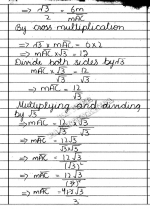 ⇒ √3/2 = 6m/mAC
By cross multiplication
⇒ √3 x mAC = 6x2
⇒ mAC x √3 = 12
Divide both sides by √3
mAC x √3/√3 = 12/√3
⇒ mAC = 12/√3
Multiplying and dividing
by √3
⇒ mAC = 12/√3 x √3/√3
⇒ mAC = 12√3/√3x√3
⇒ mAC = 12√3/(√3)²
⇒ mAC = 12√3
⇒ mAC = 
3